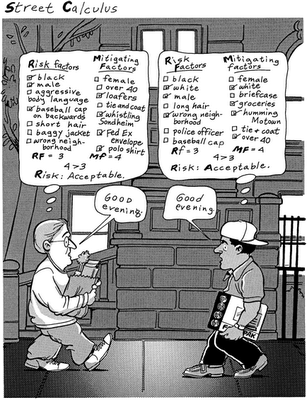 Street Calculus
Risk Factors
black
male
aggressive
body language
baseball cap
on backwards
short hair
baggy jacket
wrong neigh-
borhood
RF = 3
Mitigating
Factors
female
over 40
loafers
tie and coat
whistling
Sondheim
Fed Ex
envelope
polo shirt
MF = 4
4 > 3
Risk: Acceptable.
Risk
Factors
black
white
male
long hair
wrong neigh-
borhood
police officer
baseball cap
RF = 3
Mitigating
Factors
female
white
briefcase
groceries
humming
Motown
tie & coat
over 40
MF = 4
4 > 3
Risk: Acceptable.
Good
evening.
Good
evening